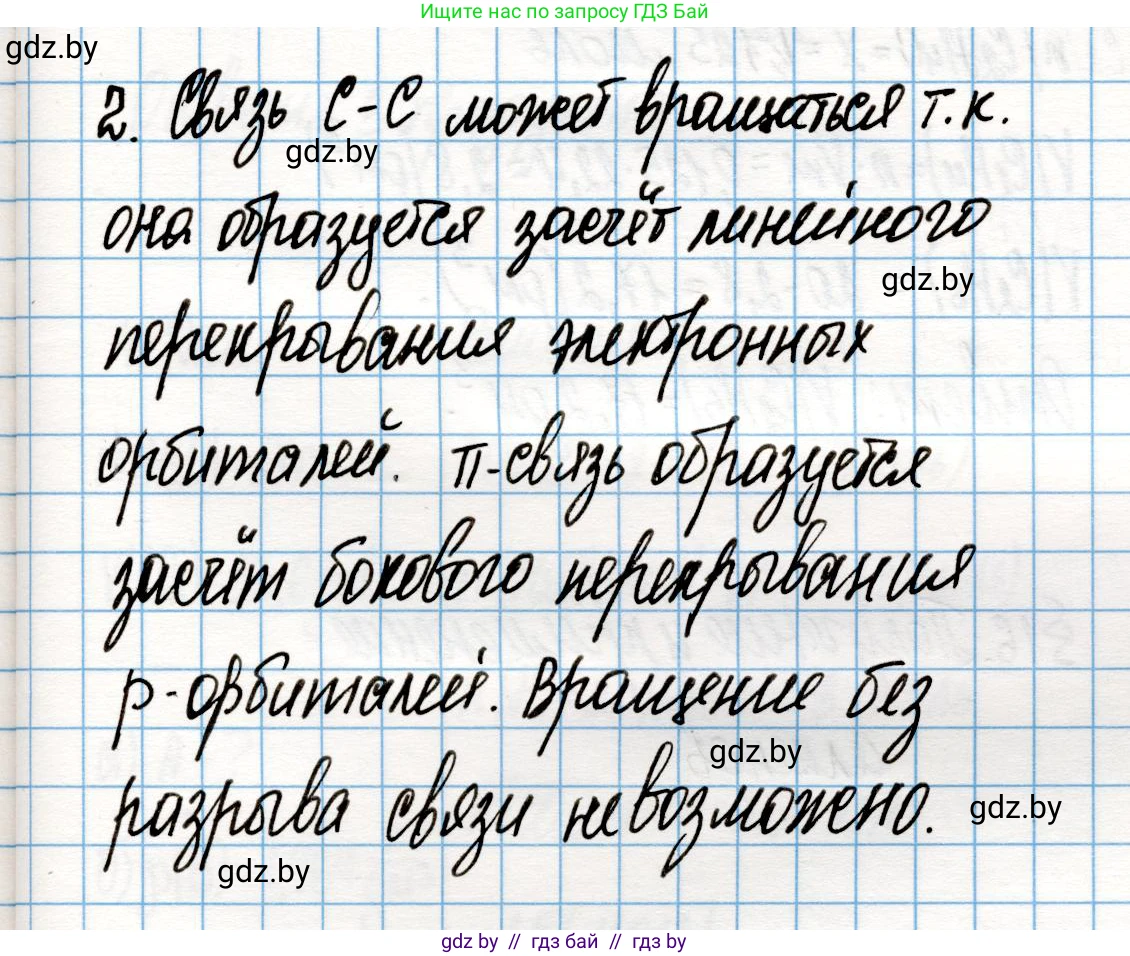 Ищите нас по запросу ГДЗ Бай
gdz.by
2. Связь С-С может вращаться т.к.
gdz.by
она образуется засчёт линейного
gdz.by
перекрывания электронных
орбиталей. π-связь образуется
засчёт бокового перекрывания
р-орбиталей. Вращение без
gdz.by
разрыва связи невозможено.
gdz.by
gdz.by
gdz by // гдз бай // gdz by